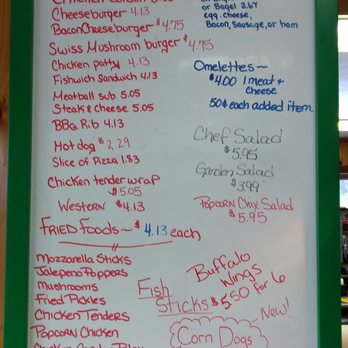 Cheeseburger 4.13
Bacon Cheeseburger $4.75
Swiss Mushroom burger $4.75
Chicken patty 4.13
Fishwich Sandwich 4.13
Meatball sub 5.05
Steak & Cheese 5.05
BBQ Rib 4.13
Hot dog $2.29
Slice of Pizza 1.83
Chicken tender wrap
$5.05
Western $4.13
FRIED FOODS ~ $4.13 each
Mozzarella Sticks
Jalepeno Poppers
Mushrooms
Fried Pickles
Chicken Tenders
Popcorn Chicken
or Bagel 3.67
egg, cheese,
Bacon, Sausage, or ham
Omelettes ~
$4.00 1 meat +
cheese
50¢ each added item
Chef Salad
$5.95
Garden Salad
$3.99
Popcorn Chix Salad
$5.95
Buffalo
Wings
$5.50 for 6
Fish
Sticks
New!
Corn Dogs